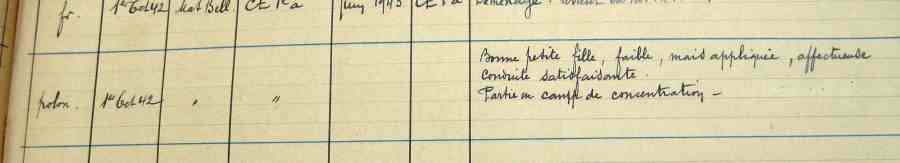 fr. 1er Oct 42 Mat Bell Ct 1re a juin 1943
polon. 1er Oct 42 " " Bonne petite fille, faible, mais appliquée, affectueuse
Conduite satisfaisante.
Partie en camp de concentration –